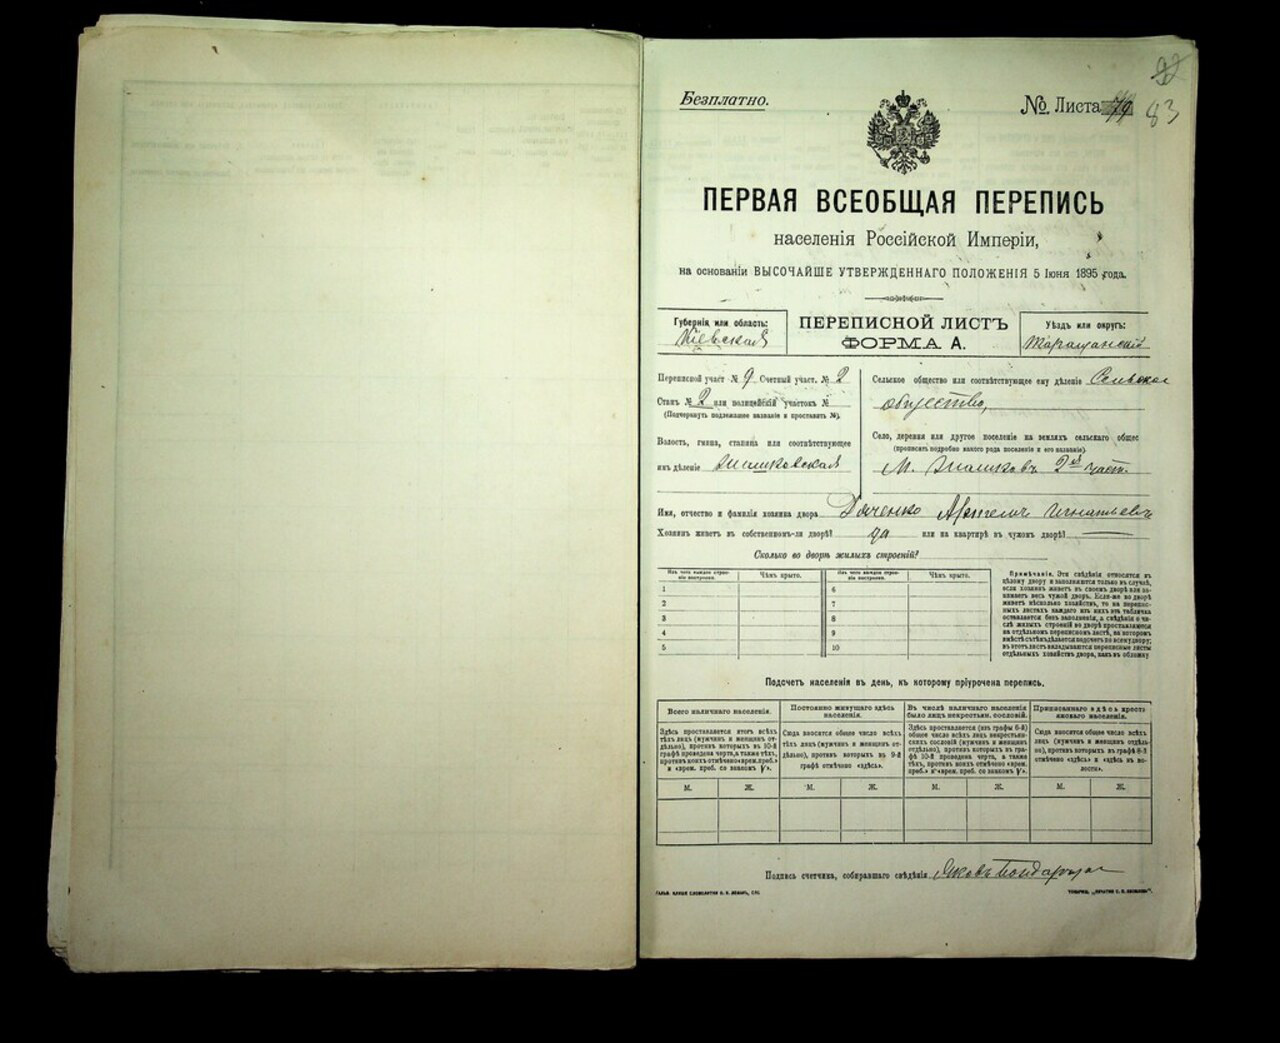 Безплатно.
№ Листа 79
83
ПЕРВАЯ ВСЕОБЩАЯ ПЕРЕПИСЬ
населенія Россійской Имперіи,
на основаніи ВЫСОЧАЙШЕ УТВЕРЖДЕННАГО ПОЛОЖЕНІЯ 5 Іюня 1895 года.
Губернія или область:
Кіевская
ПЕРЕПИСНОЙ ЛИСТЪ
ФОРМА А.
Уѣздъ или округъ:
Таращанскій
Переписной участ № 9 Счетный участ. № 2
Станъ № 2 или полицейскій участокъ №
(Подчеркнуть подлежащее названіе и проставить №).
Волость, гмина, станица или соотвѣтствующее
имъ дѣленіе
Сельское общество или соотвѣтствующее ему дѣленіе Сельское
общество,
Село, деревня или другое поселеніе на земляхъ сельскаго общес
(прописать подробно какого рода поселеніе и его названіе).
М. 2я част.
Имя, отчество и фамилія хозяина двора Дяченко Игнатьевъ
Хозяинъ живетъ въ собственномъ-ли дворѣ? да или на квартирѣ въ чужомъ дворѣ?
Сколько во дворѣ жилыхъ строеній?
Изъ чего каждое строеніе построено.
Чѣмъ крыто.
Изъ чего каждое строеніе построено.
Чѣмъ крыто.
1 6
2 7
3 8
4 9
5 10
Примѣчаніе. Эти свѣдѣнія относятся къ
цѣлому двору и заполняются только въ случаѣ,
если хозяинъ живетъ въ своемъ дворѣ или за-
нимаетъ весь чужой дворъ. Если-же во дворѣ
живетъ нѣсколько хозяйствъ, то на перепис-
ныхъ листахъ каждаго изъ нихъ эта табличка
оставляется безъ заполненія, а свѣдѣнія о чи-
слѣ жилыхъ строеній во дворѣ проставляются
на отдѣльномъ переписномъ листѣ, на которомъ
вмѣстѣ съ тѣмъ дѣлается подсчетъ по всему двору;
въ этотъ листъ вкладываются переписные листы
отдѣльныхъ хозяйствъ двора, какъ въ обложку
Подсчетъ населенія въ день, къ которому пріурочена перепись.
Всего наличнаго населенія.
Постоянно живущаго здѣсь
населенія.
Въ числѣ наличнаго населенія
было лицъ некрестьян. сословій.
Приписаннаго здѣсь крестьянскаго населенія.
Здѣсь проставляется итогъ всѣхъ
тѣхъ лицъ (мужчинъ и женщинъ от-
дѣльно), противъ которыхъ въ 10-й
графѣ проведена черта, а также тѣхъ,
противъ коихъ отмѣчено «врем. преб.»
и «врем. преб. со знакомъ V».
Сюда вносится общее число всѣхъ
тѣхъ лицъ (мужчинъ и женщинъ от-
дѣльно), противъ которыхъ въ 9-й
графѣ отмѣчено «здѣсь».
Здѣсь проставляется (изъ графы 6-й)
общее число всѣхъ лицъ некрестьян-
скихъ сословій (мужчинъ и женщинъ
отдѣльно), противъ которыхъ въ гра-
фѣ 10-й проведена черта, а также
тѣхъ, противъ коихъ отмѣчено «врем.
преб.» и «врем. преб. со знакомъ V».
Сюда вносится общее число всѣхъ
лицъ (мужчинъ и женщинъ отдѣль-
но), противъ которыхъ въ графѣ 8-й
отмѣчено «здѣсь» и «здѣсь въ во-
лости».
М. Ж. М. Ж. М. Ж. М. Ж.
Подпись счетчика, собиравшаго свѣдѣнія Яковъ